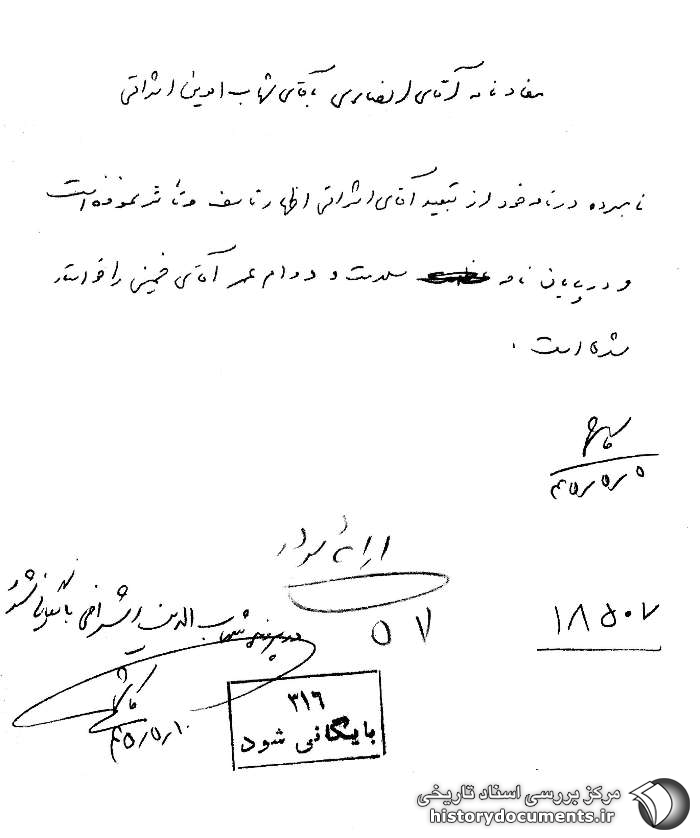 مفاد نامه آقای انصاری بآقای شهاب الدین اشراقی
نامبرده در نامه خود از تبعید آقای اشراقی اظهار تاسف و تأثر نموده است
و در پایان نامه سلامت و دوام عمر آقای خمینی را خواستار
شده است .
۴۵/۵/۵
۱۸۵۰۷
۵۷
در پرونده شهاب الدین اشراقی بایگانی شود
۴۵/۵/۱۰
۳۱۶
بایگانی شود
مرکز بررسی اسناد تاریخی
historydocuments.ir